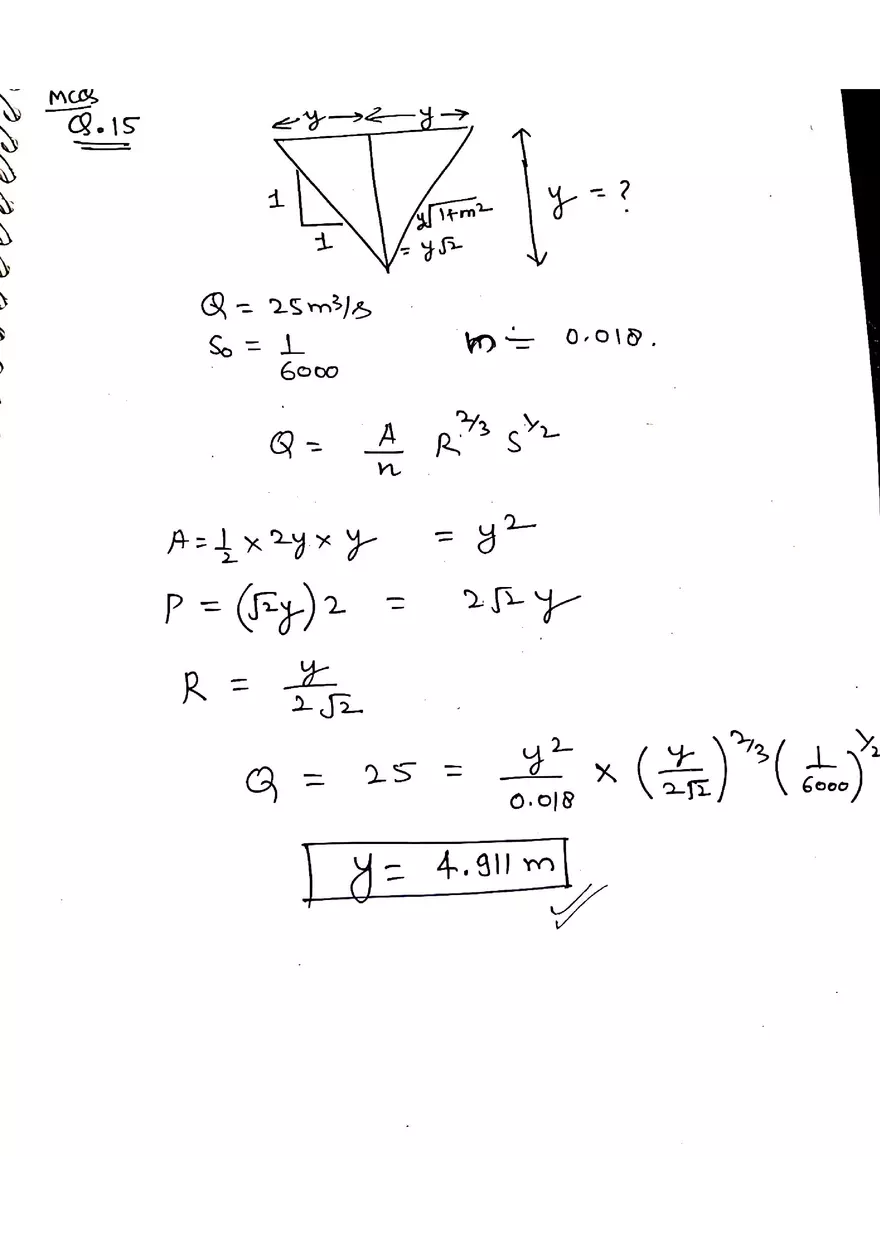 MCQs
Q.15
← y → ← y →
1
1
y√1+m²
= y√2
y = ?
Q = 25m³/s
S₀ = 1/6000 n = 0.018.
Q = A/n R^2/3 S^1/2
A = 1/2 × 2y × y = y²
P = (√2y)2 = 2√2 y
R = y/2√2
Q = 25 = y²/0.018 × (y/2√2)^2/3 (1/6000)^1/2
y = 4.911 m